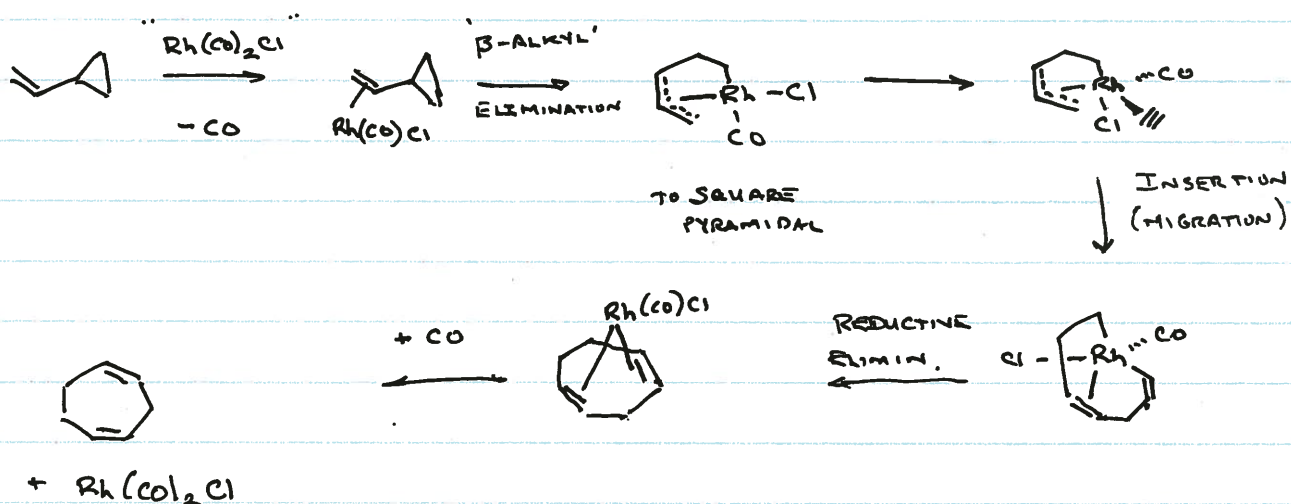 "Rh(CO)2Cl"
- CO
Rh(CO)Cl
'β-ALKYL'
ELIMINATION
Rh - Cl
CO
Rh ···CO
Cl
TO SQUARE
PYRAMIDAL
INSERTION
(MIGRATION)
Cl - Rh ···CO
REDUCTIVE
ELIMIN.
Rh(CO)Cl
+ CO
+ Rh(CO)2Cl